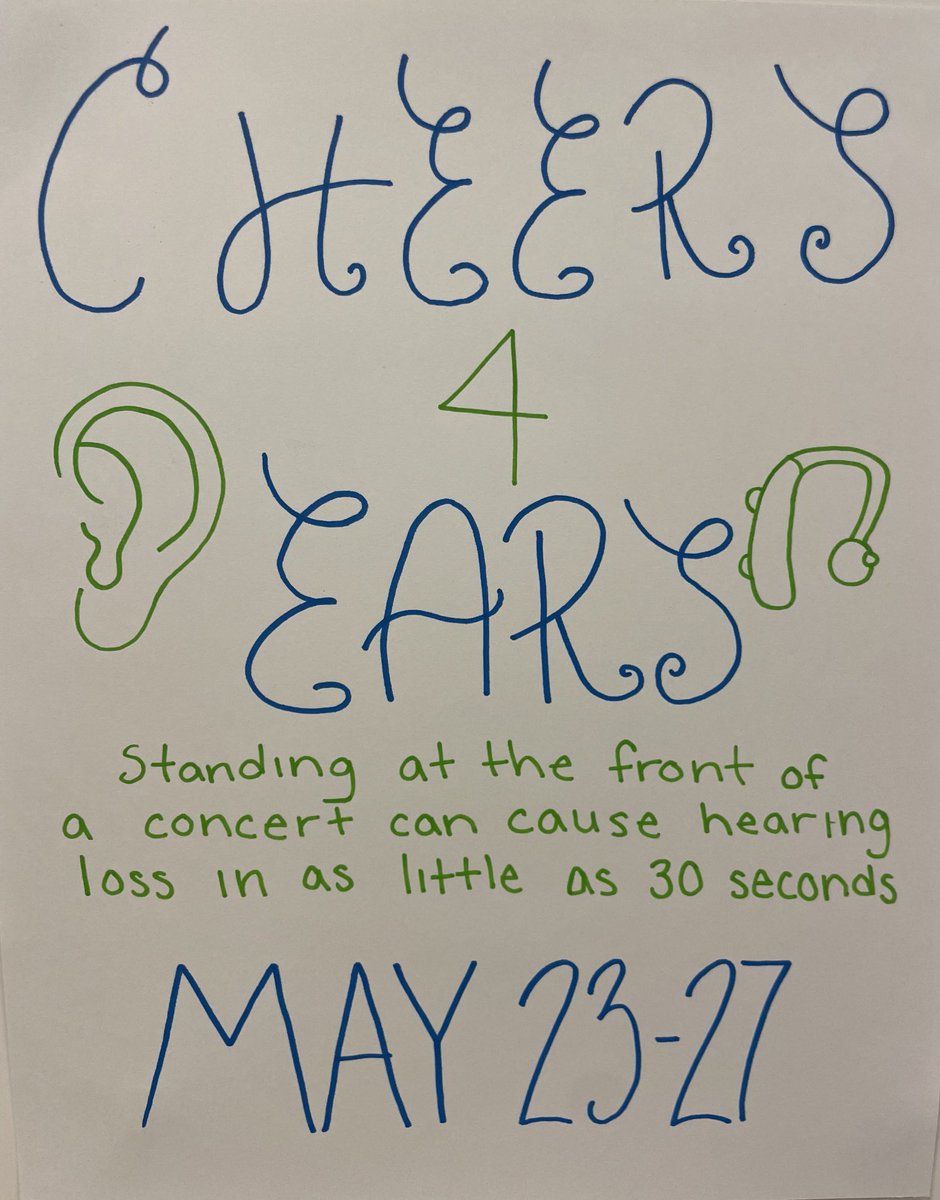 CHEERS
4
EARS
Standing at the front of
a concert can cause hearing
loss in as little as 30 seconds
MAY 23-27